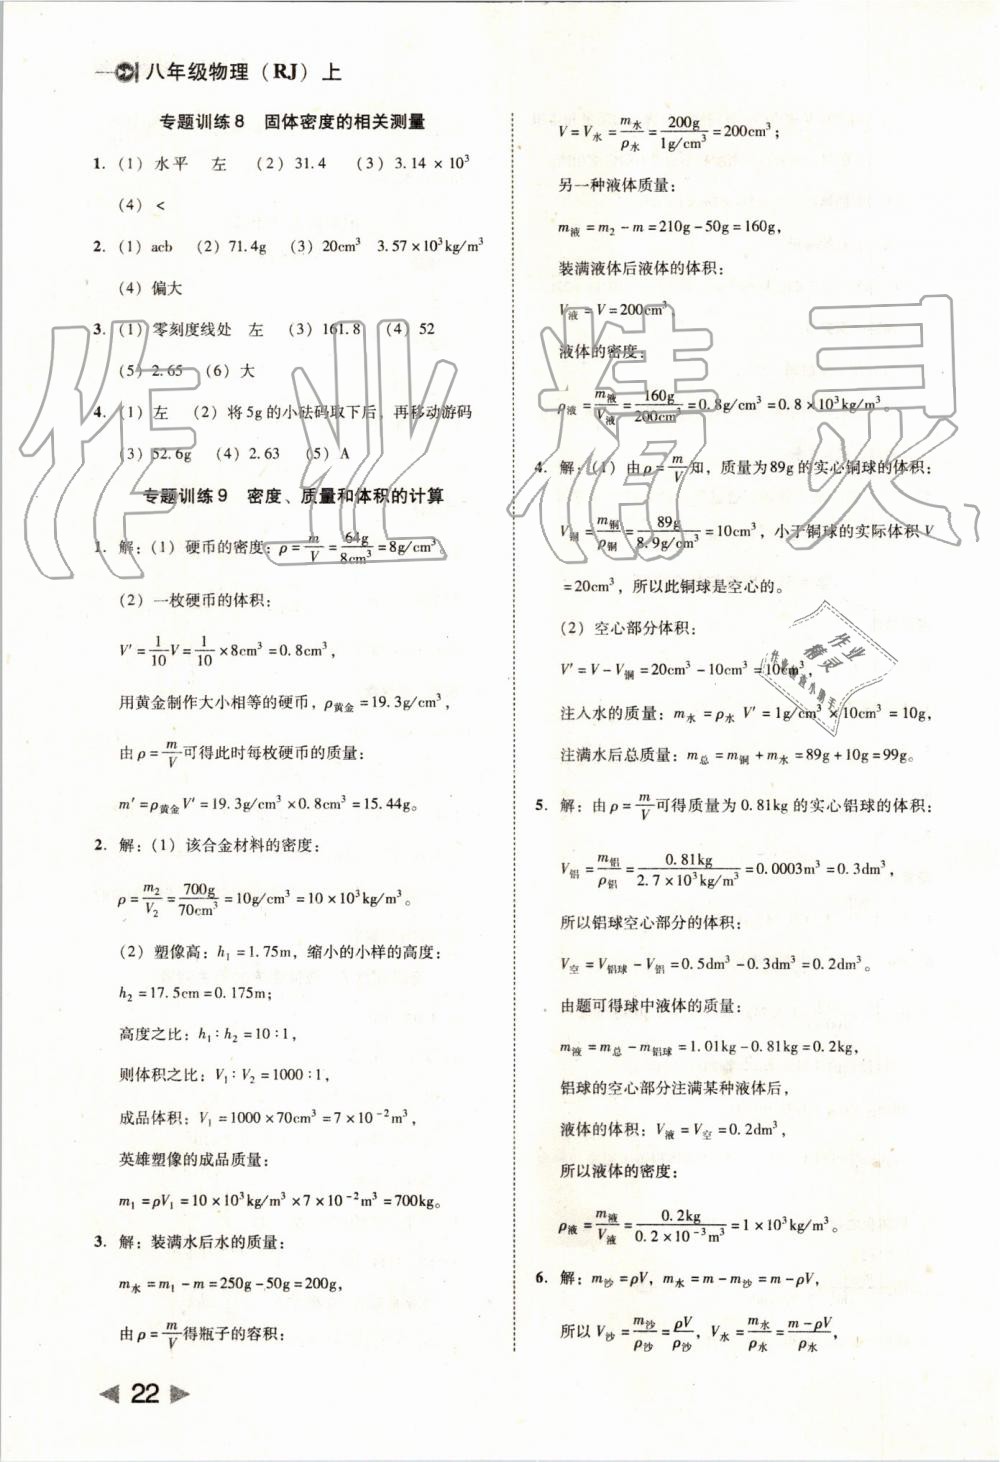 八年级物理(RJ)上
专题训练8 固体密度的相关测量
1. (1) 水平 左 (2) 31.4 (3) 3.14×10³
(4) <
2. (1) acb (2) 71.4g (3) 20cm³ 3.57×10³kg/m³
(4) 偏大
3. (1) 零刻度线处 左 (3) 161.8 (4) 52
(5) 2.65 (6) 大
4. (1) 左 (2) 将5g的小砝码取下后,再移动游码
(3) 52.6g (4) 2.63 (5) A
专题训练9 密度、质量和体积的计算
1. 解:(1) 硬币的密度:ρ=m/V=64g/8cm³=8g/cm³。
(2) 一枚硬币的体积:
V′=1/10V=1/10×8cm³=0.8cm³,
用黄金制作大小相等的硬币,ρ黄金=19.3g/cm³,
由ρ=m/V可得此时每枚硬币的质量:
m′=ρ黄金V′=19.3g/cm³×0.8cm³=15.44g。
2. 解:(1) 该合金材料的密度:
ρ=m₂/V₂=700g/70cm³=10g/cm³=10×10³kg/m³。
(2) 塑像高:h₁=1.75m,缩小的小样的高度:
h₂=17.5cm=0.175m;
高度之比:h₁∶h₂=10∶1,
则体积之比:V₁∶V₂=1000∶1,
成品体积:V₁=1000×70cm³=7×10⁻²m³,
英雄塑像的成品质量:
m₁=ρV₁=10×10³kg/m³×7×10⁻²m³=700kg。
3. 解:装满水后水的质量:
m水=m₁-m=250g-50g=200g,
由ρ=m/V得瓶子的容积:
V=V水=m水/ρ水=200g/1g/cm³=200cm³;
另一种液体质量:
m液=m₂-m=210g-50g=160g,
装满液体后液体的体积:
V液=V=200cm³,
液体的密度:
ρ液=m液/V液=160g/200cm³=0.8g/cm³=0.8×10³kg/m³。
4. 解:(1) 由ρ=m/V知,质量为89g的实心铜球的体积:
V铜=m铜/ρ铜=89g/8.9g/cm³=10cm³,小于铜球的实际体积V
=20cm³,所以此铜球是空心的。
(2) 空心部分体积:
V′=V-V铜=20cm³-10cm³=10cm³,
注入水的质量:m水=ρ水V′=1g/cm³×10cm³=10g,
注满水后总质量:m总=m铜+m水=89g+10g=99g。
5. 解:由ρ=m/V可得质量为0.81kg的实心铝球的体积:
V铝=m铝/ρ铝=0.81kg/2.7×10³kg/m³=0.0003m³=0.3dm³,
所以铝球空心部分的体积:
V空=V铝球-V铝=0.5dm³-0.3dm³=0.2dm³。
由题可得球中液体的质量:
m液=m总-m铝球=1.01kg-0.81kg=0.2kg,
铝球的空心部分注满某种液体后,
液体的体积:V液=V空=0.2dm³,
所以液体的密度:
ρ液=m液/V液=0.2kg/0.2×10⁻³m³=1×10³kg/m³。
6. 解:m沙=ρV,m水=m-m沙=m-ρV,
所以V沙=m沙/ρ沙=ρV/ρ沙,V水=m水/ρ水=m-ρV/ρ水,
22
作业精灵
作业
精灵